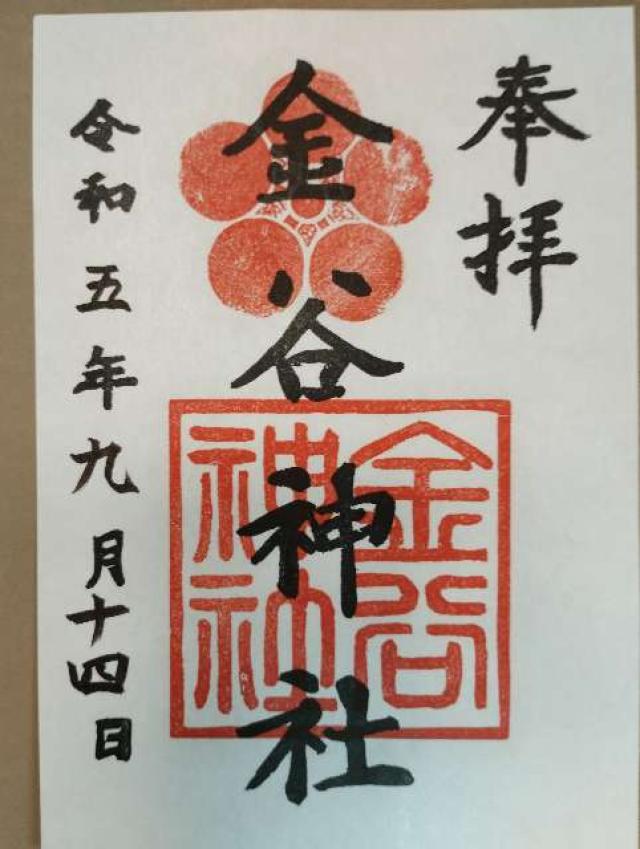 奉拝
金谷神社
金谷
神社
令和五年九月十四日